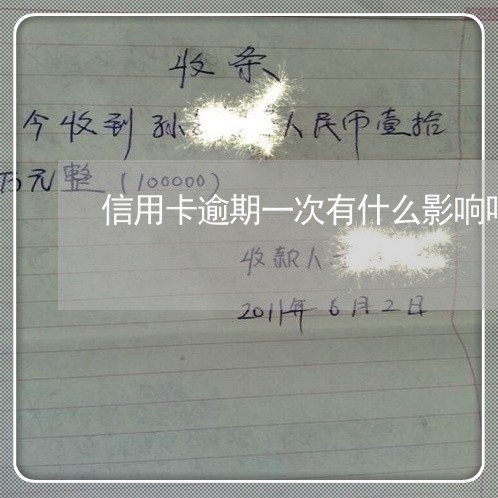 收条
今收到孙人民币壹拾
万元整(100000)
信用卡逾期一次有什么影响吗
收款人
2011年6月2日